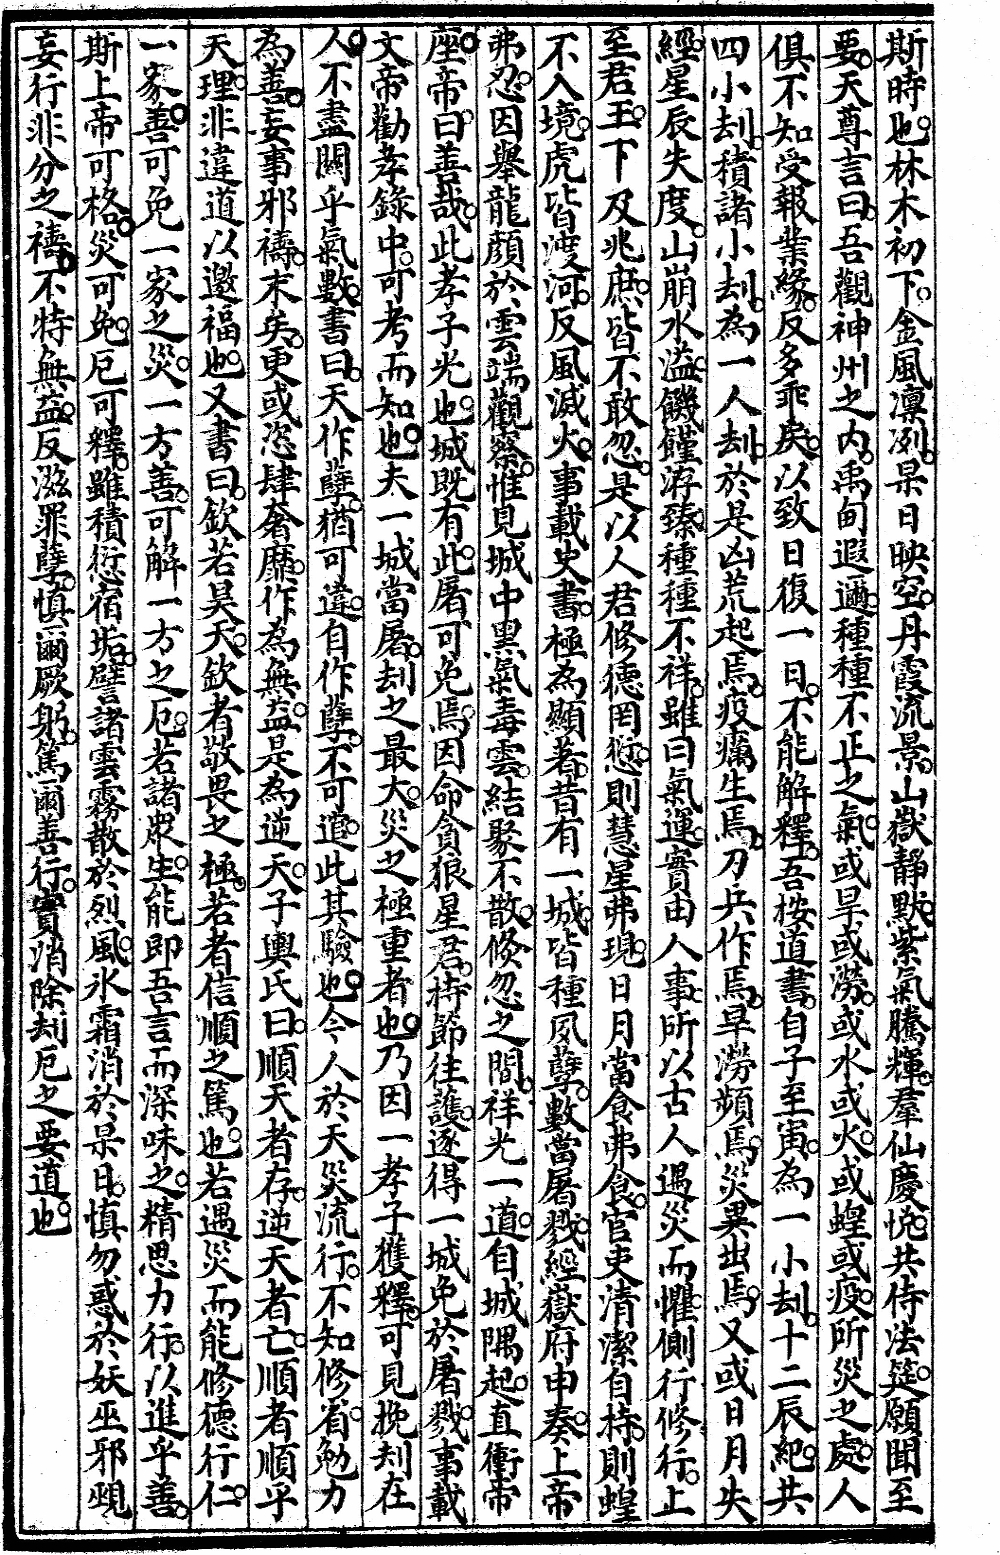 斯時也林木初下金風凛冽杲日映空丹霞流景山嶽靜默紫氣騰輝羣仙慶悅共侍法筵願聞至
要天尊言曰吾觀神州之内禹甸遐邇種種不正之氣或旱或澇或水或火或蝗或疫所災之處人
俱不知受報業緣反多乖戾以致日復一日不能解釋吾按道書自子至寅為一小刦十二辰紀共
四小刦積諸小刦為一人刦於是凶荒起焉疫癘生焉刀兵作焉旱澇頻焉災異出焉又或日月失
經星辰失度山崩水溢饑饉洊臻種種不祥雖曰氣運實由人事所以古人遇災而懼側行修行上
至君王下及兆庶皆不敢忽是以人君修德罔愆則慧星弗現日月當食弗食官吏清潔自持則蝗
不入境虎皆渡河反風滅火事載史書極為顯著昔有一城皆種夙孽數當屠戮經嶽府申奏上帝
弗忍因舉龍顏於雲端觀察惟見城中黑氣毒雲結聚不散倐忽之間祥光一道自城隅起直衝帝
座帝曰善哉此孝子光也城既有此屠可免焉因命貪狼星君持節往護遂得一城免於屠戮事載
文帝勸孝錄中可考而知也夫一城當屠刦之最大災之極重者也乃因一孝子獲釋可見挽刦在
人不盡關乎氣數書曰天作孽猶可違自作孽不可逭此其驗也今人於天災流行不知修省勉力
為善妄事邪禱末矣更或恣肆奢靡作為無益是為逆天子輿氏曰順天者存逆天者亡順者順乎
天理非違道以邀福也又書曰欽若昊天欽者敬畏之極若者信順之篤也若遇災而能修德行仁
一家善可免一家之災一方善可解一方之厄若諸眾生能即吾言而深味之精思力行以進乎善
斯上帝可格災可免厄可釋雖積愆宿垢譬諸雲霧散於烈風氷霜消於杲日慎勿惑於妖巫邪覡
妄行非分之禱不特無益反滋罪孽慎爾厥躬篤爾善行實消除刦厄之要道也